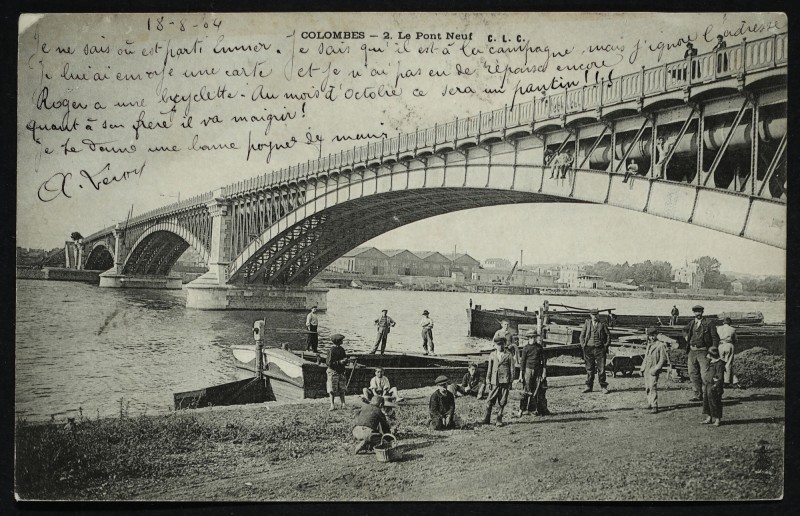 18-8-04
COLOMBES — 2. Le Pont Neuf C. L. C.
Je ne sais où est parti . Je sais qu'il est à la campagne mais j'ignore l'adresse
Je lui ai envoyé une carte et je n'ai pas eu de réponse encore
Roger a une bicyclette. Au mois d'Octobre ce sera un pantin!!!
quant à son frère il va maigrir!
Je te donne une bonne poignée de main